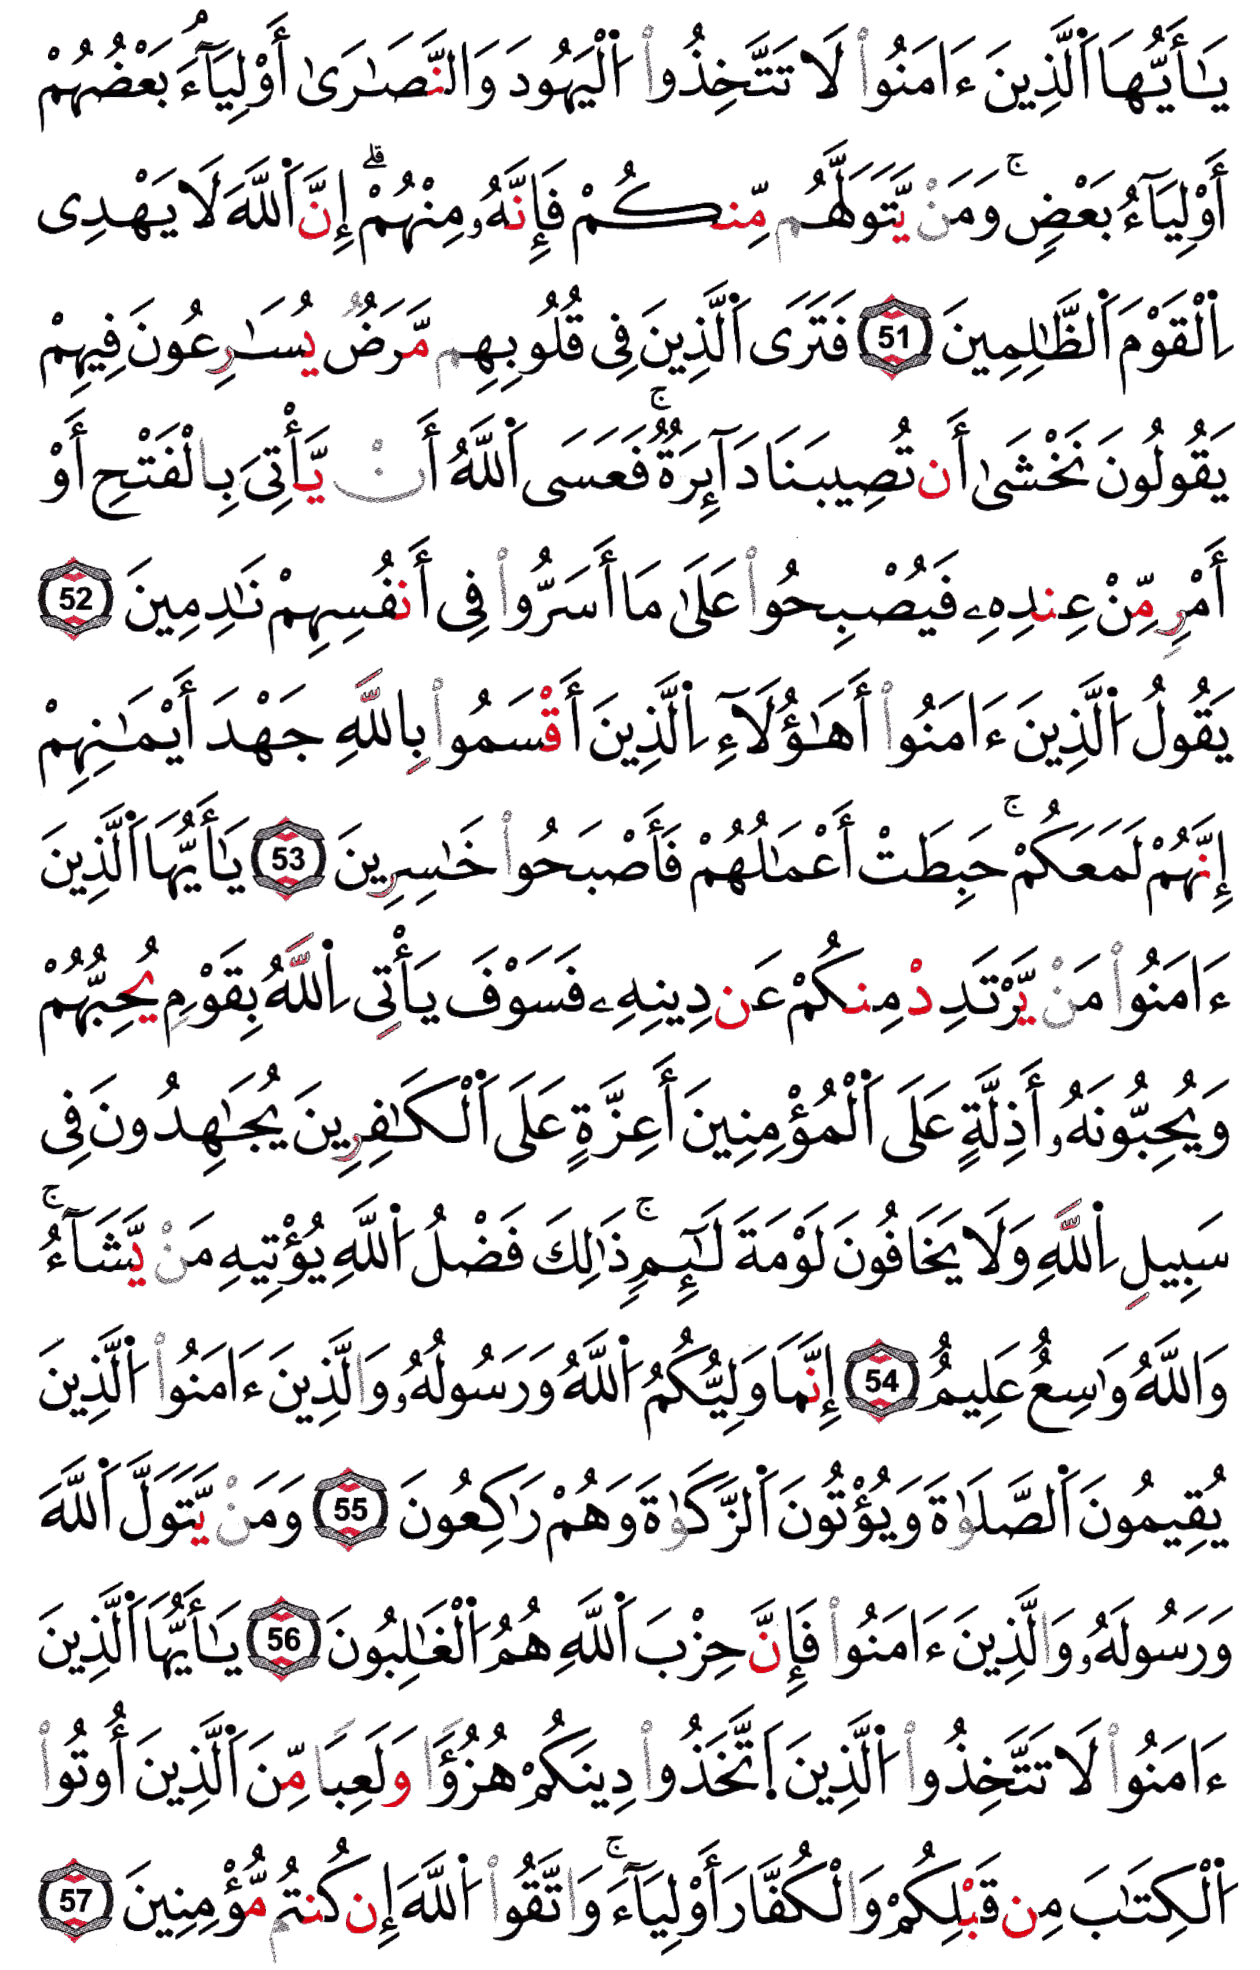 يَٰٓأَيُّهَا ٱلَّذِينَ ءَامَنُوا۟ لَا تَتَّخِذُوا۟ ٱلْيَهُودَ وَالنَّصَٰرَىٰٓ أَوْلِيَآءَ بَعْضُهُمْ
أَوْلِيَآءُ بَعْضٍ ۚ وَمَنْ يَّتَوَلَّهُم مِّنكُمْ فَإِنَّهُۥ مِنْهُمْ ۗ إِنَّ ٱللَّهَ لَا يَهْدِى
ٱلْقَوْمَ ٱلظَّٰلِمِينَ 51 فَتَرَى ٱلَّذِينَ فِى قُلُوبِهِم مَّرَضٌ يُسَٰرِعُونَ فِيهِمْ
يَقُولُونَ نَخْشَىٰٓ أَن تُصِيبَنَا دَآئِرَةٌ ۚ فَعَسَى ٱللَّهُ أَنْ يَّأْتِىَ بِالْفَتْحِ أَوْ
أَمْرٍ مِّنْ عِندِهِۦ فَيُصْبِحُوا۟ عَلَىٰ مَآ أَسَرُّوا۟ فِىٓ أَنفُسِهِمْ نَٰدِمِينَ 52
يَقُولُ ٱلَّذِينَ ءَامَنُوٓا۟ أَهَٰٓؤُلَآءِ ٱلَّذِينَ أَقْسَمُوا۟ بِاللَّهِ جَهْدَ أَيْمَٰنِهِمْ
إِنَّهُمْ لَمَعَكُمْ ۚ حَبِطَتْ أَعْمَٰلُهُمْ فَأَصْبَحُوا۟ خَٰسِرِينَ 53 يَٰٓأَيُّهَا ٱلَّذِينَ
ءَامَنُوا۟ مَنْ يَّرْتَدِدْ مِنكُمْ عَن دِينِهِۦ فَسَوْفَ يَأْتِى ٱللَّهُ بِقَوْمٍ يُحِبُّهُمْ
وَيُحِبُّونَهُۥٓ أَذِلَّةٍ عَلَى ٱلْمُؤْمِنِينَ أَعِزَّةٍ عَلَى ٱلْكَٰفِرِينَ يُجَٰهِدُونَ فِى
سَبِيلِ ٱللَّهِ وَلَا يَخَافُونَ لَوْمَةَ لَآئِمٍ ۚ ذَٰلِكَ فَضْلُ ٱللَّهِ يُؤْتِيهِ مَنْ يَّشَآءُ ۚ
وَاللَّهُ وَٰسِعٌ عَلِيمٌ 54 إِنَّمَا وَلِيُّكُمُ ٱللَّهُ وَرَسُولُهُۥ وَالَّذِينَ ءَامَنُوا۟ ٱلَّذِينَ
يُقِيمُونَ ٱلصَّلَوٰةَ وَيُؤْتُونَ ٱلزَّكَوٰةَ وَهُمْ رَٰكِعُونَ 55 وَمَنْ يَّتَوَلَّ ٱللَّهَ
وَرَسُولَهُۥ وَالَّذِينَ ءَامَنُوا۟ فَإِنَّ حِزْبَ ٱللَّهِ هُمُ ٱلْغَٰلِبُونَ 56 يَٰٓأَيُّهَا ٱلَّذِينَ
ءَامَنُوا۟ لَا تَتَّخِذُوا۟ ٱلَّذِينَ ٱتَّخَذُوا۟ دِينَكُمْ هُزُؤًا وَلَعِبًا مِّنَ ٱلَّذِينَ أُوتُوا۟
ٱلْكِتَٰبَ مِن قَبْلِكُمْ وَالْكُفَّارَ أَوْلِيَآءَ ۚ وَاتَّقُوا۟ ٱللَّهَ إِن كُنتُم مُّؤْمِنِينَ 57